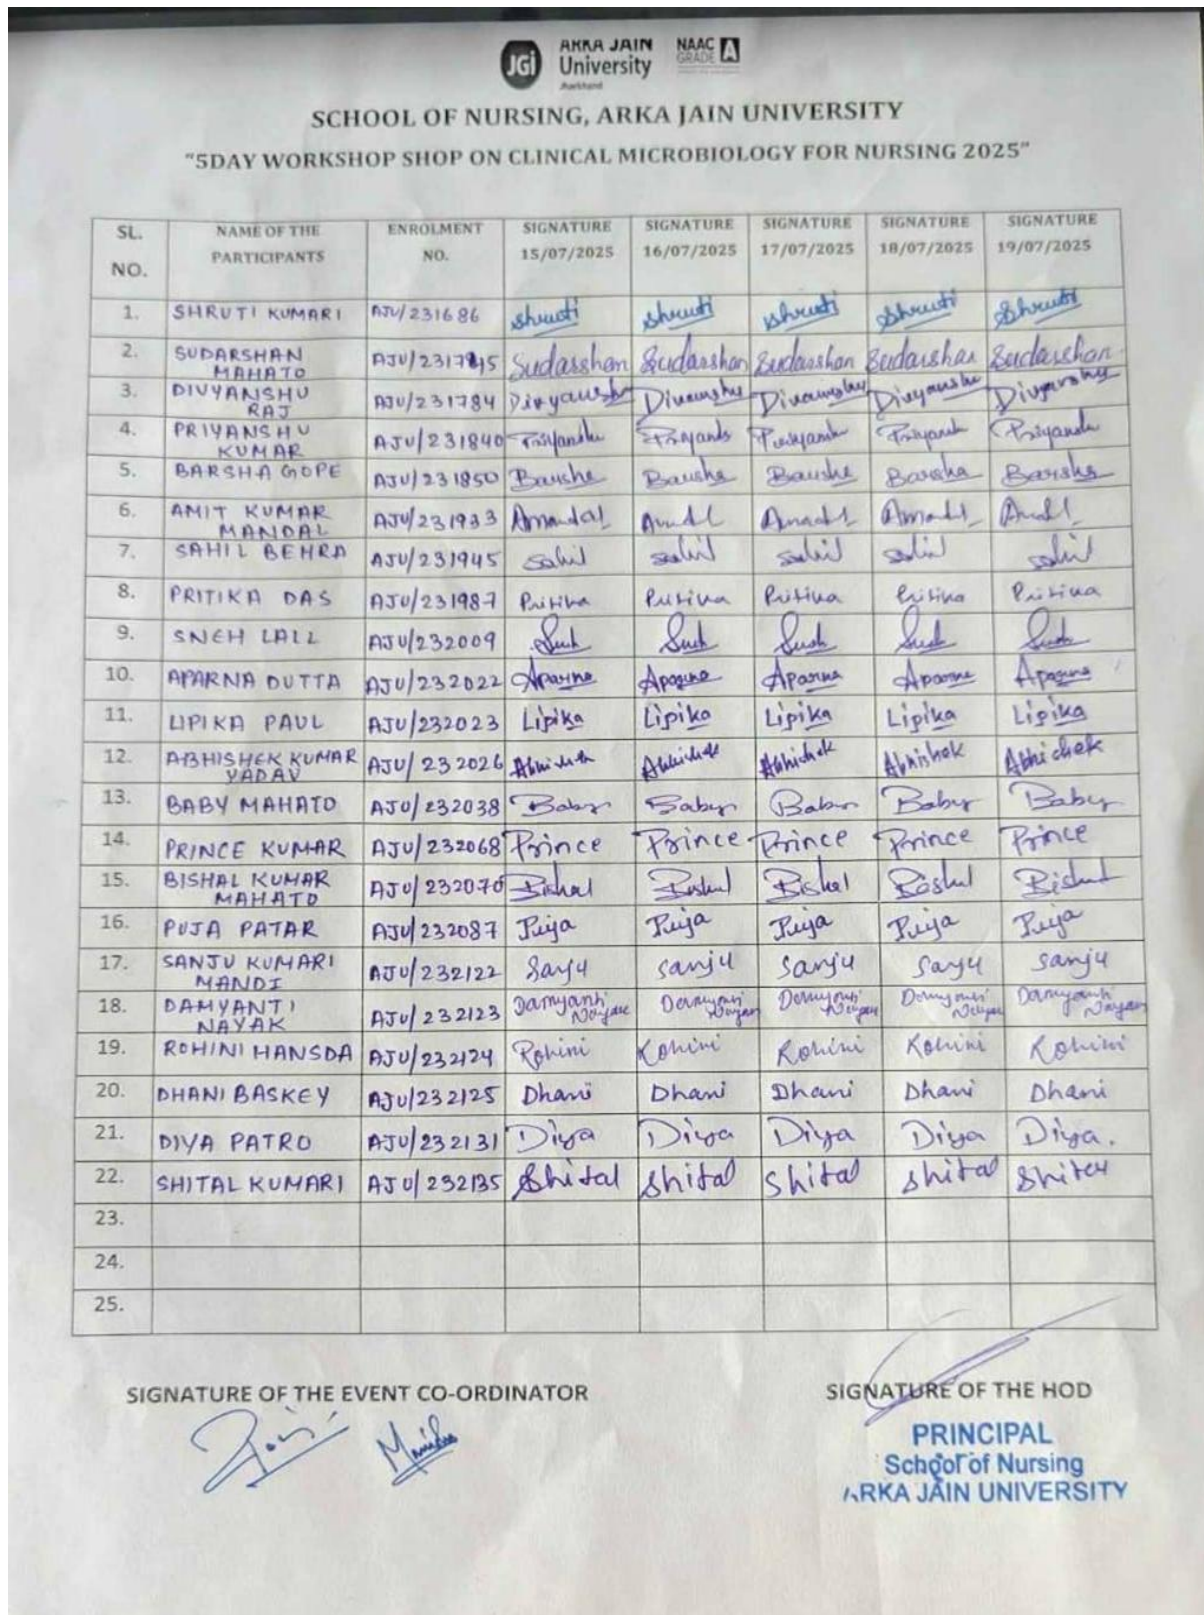 JGi
ARKA JAIN
University
Jharkhand
NAAC
GRADE A
SCHOOL OF NURSING, ARKA JAIN UNIVERSITY
"5DAY WORKSHOP SHOP ON CLINICAL MICROBIOLOGY FOR NURSING 2025"
SL. NO. NAME OF THE PARTICIPANTS ENROLMENT NO. SIGNATURE 15/07/2025 SIGNATURE 16/07/2025 SIGNATURE 17/07/2025 SIGNATURE 18/07/2025 SIGNATURE 19/07/2025
1. SHRUTI KUMARI AJU/231686 Shruti Shruti Shruti Shruti Shruti
2. SUDARSHAN MAHATO Sudarshan Sudarshan Sudarshan Sudarshan Sudarshan
3. DIVYANSHU RAJ AJU/231784 Divyanshu Divyanshu
4. PRIYANSHU KUMAR AJU/231840 Priyanshu
5. BARSHA GOPE AJU/231850 Barsha Barsha Barsha Barsha Barsha
6. AMIT KUMAR MANDAL AJU/231933 Amandal
7. SAHIL BEHRA AJU/231945 Sahil Sahil Sahil Sahil Sahil
8. PRITIKA DAS AJU/231987 Pritika Pritika Pritika Pritika Pritika
9. SNEH LALL AJU/232009
10. APARNA DUTTA AJU/232022 Aparna Aparna Aparna Aparna Aparna
11. LIPIKA PAUL AJU/232023 Lipika Lipika Lipika Lipika Lipika
12. ABHISHEK KUMAR YADAV AJU/232026 Abhishek Abhishek Abhishek Abhishek Abhishek
13. BABY MAHATO AJU/232038 Baby Baby Baby Baby Baby
14. PRINCE KUMAR AJU/232068 Prince Prince Prince Prince Prince
15. BISHAL KUMAR MAHATO AJU/232070 Bishal Bishal Bishal Bishal Bishal
16. PUJA PATAR AJU/232087 Puja Puja Puja Puja Puja
17. SANJU KUMARI MANDI AJU/232122 Sanju Sanju Sanju Sanju Sanju
18. DAMYANTI NAYAK AJU/232123 Damyanti Nayak Damyanti Nayak Damyanti Nayak Damyanti Nayak Damyanti Nayak
19. ROHINI HANSDA AJU/232124 Rohini Rohini Rohini Rohini Rohini
20. DHANI BASKEY AJU/232125 Dhani Dhani Dhani Dhani Dhani
21. DIYA PATRO AJU/232131 Diya Diya Diya Diya Diya.
22. SHITAL KUMARI AJU/232135 Shital Shital Shital Shital Shital
23.
24.
25.
SIGNATURE OF THE EVENT CO-ORDINATOR SIGNATURE OF THE HOD
PRINCIPAL
School of Nursing
ARKA JAIN UNIVERSITY